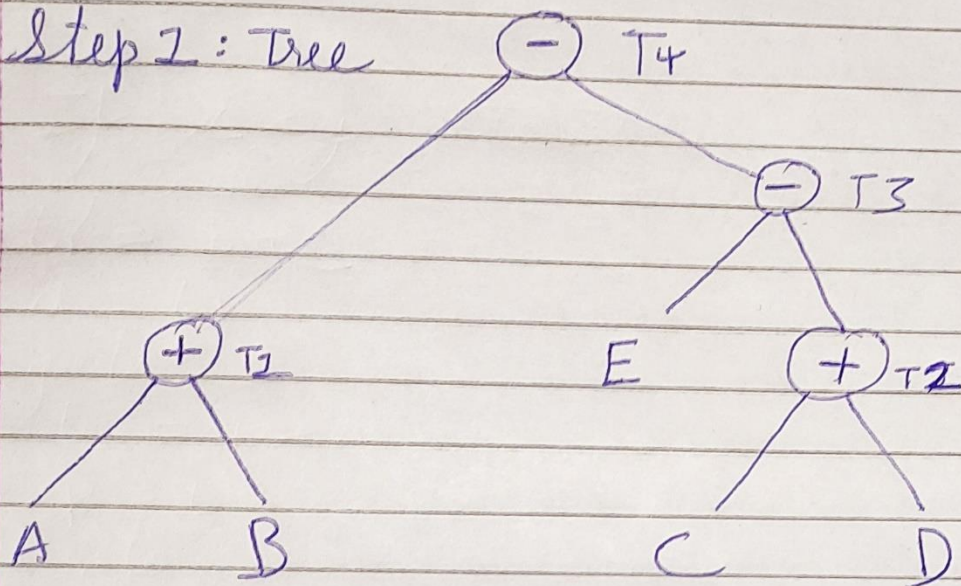 Step 1 : Tree
- T4
- T3
+ T1
E
+ T2
A B C D